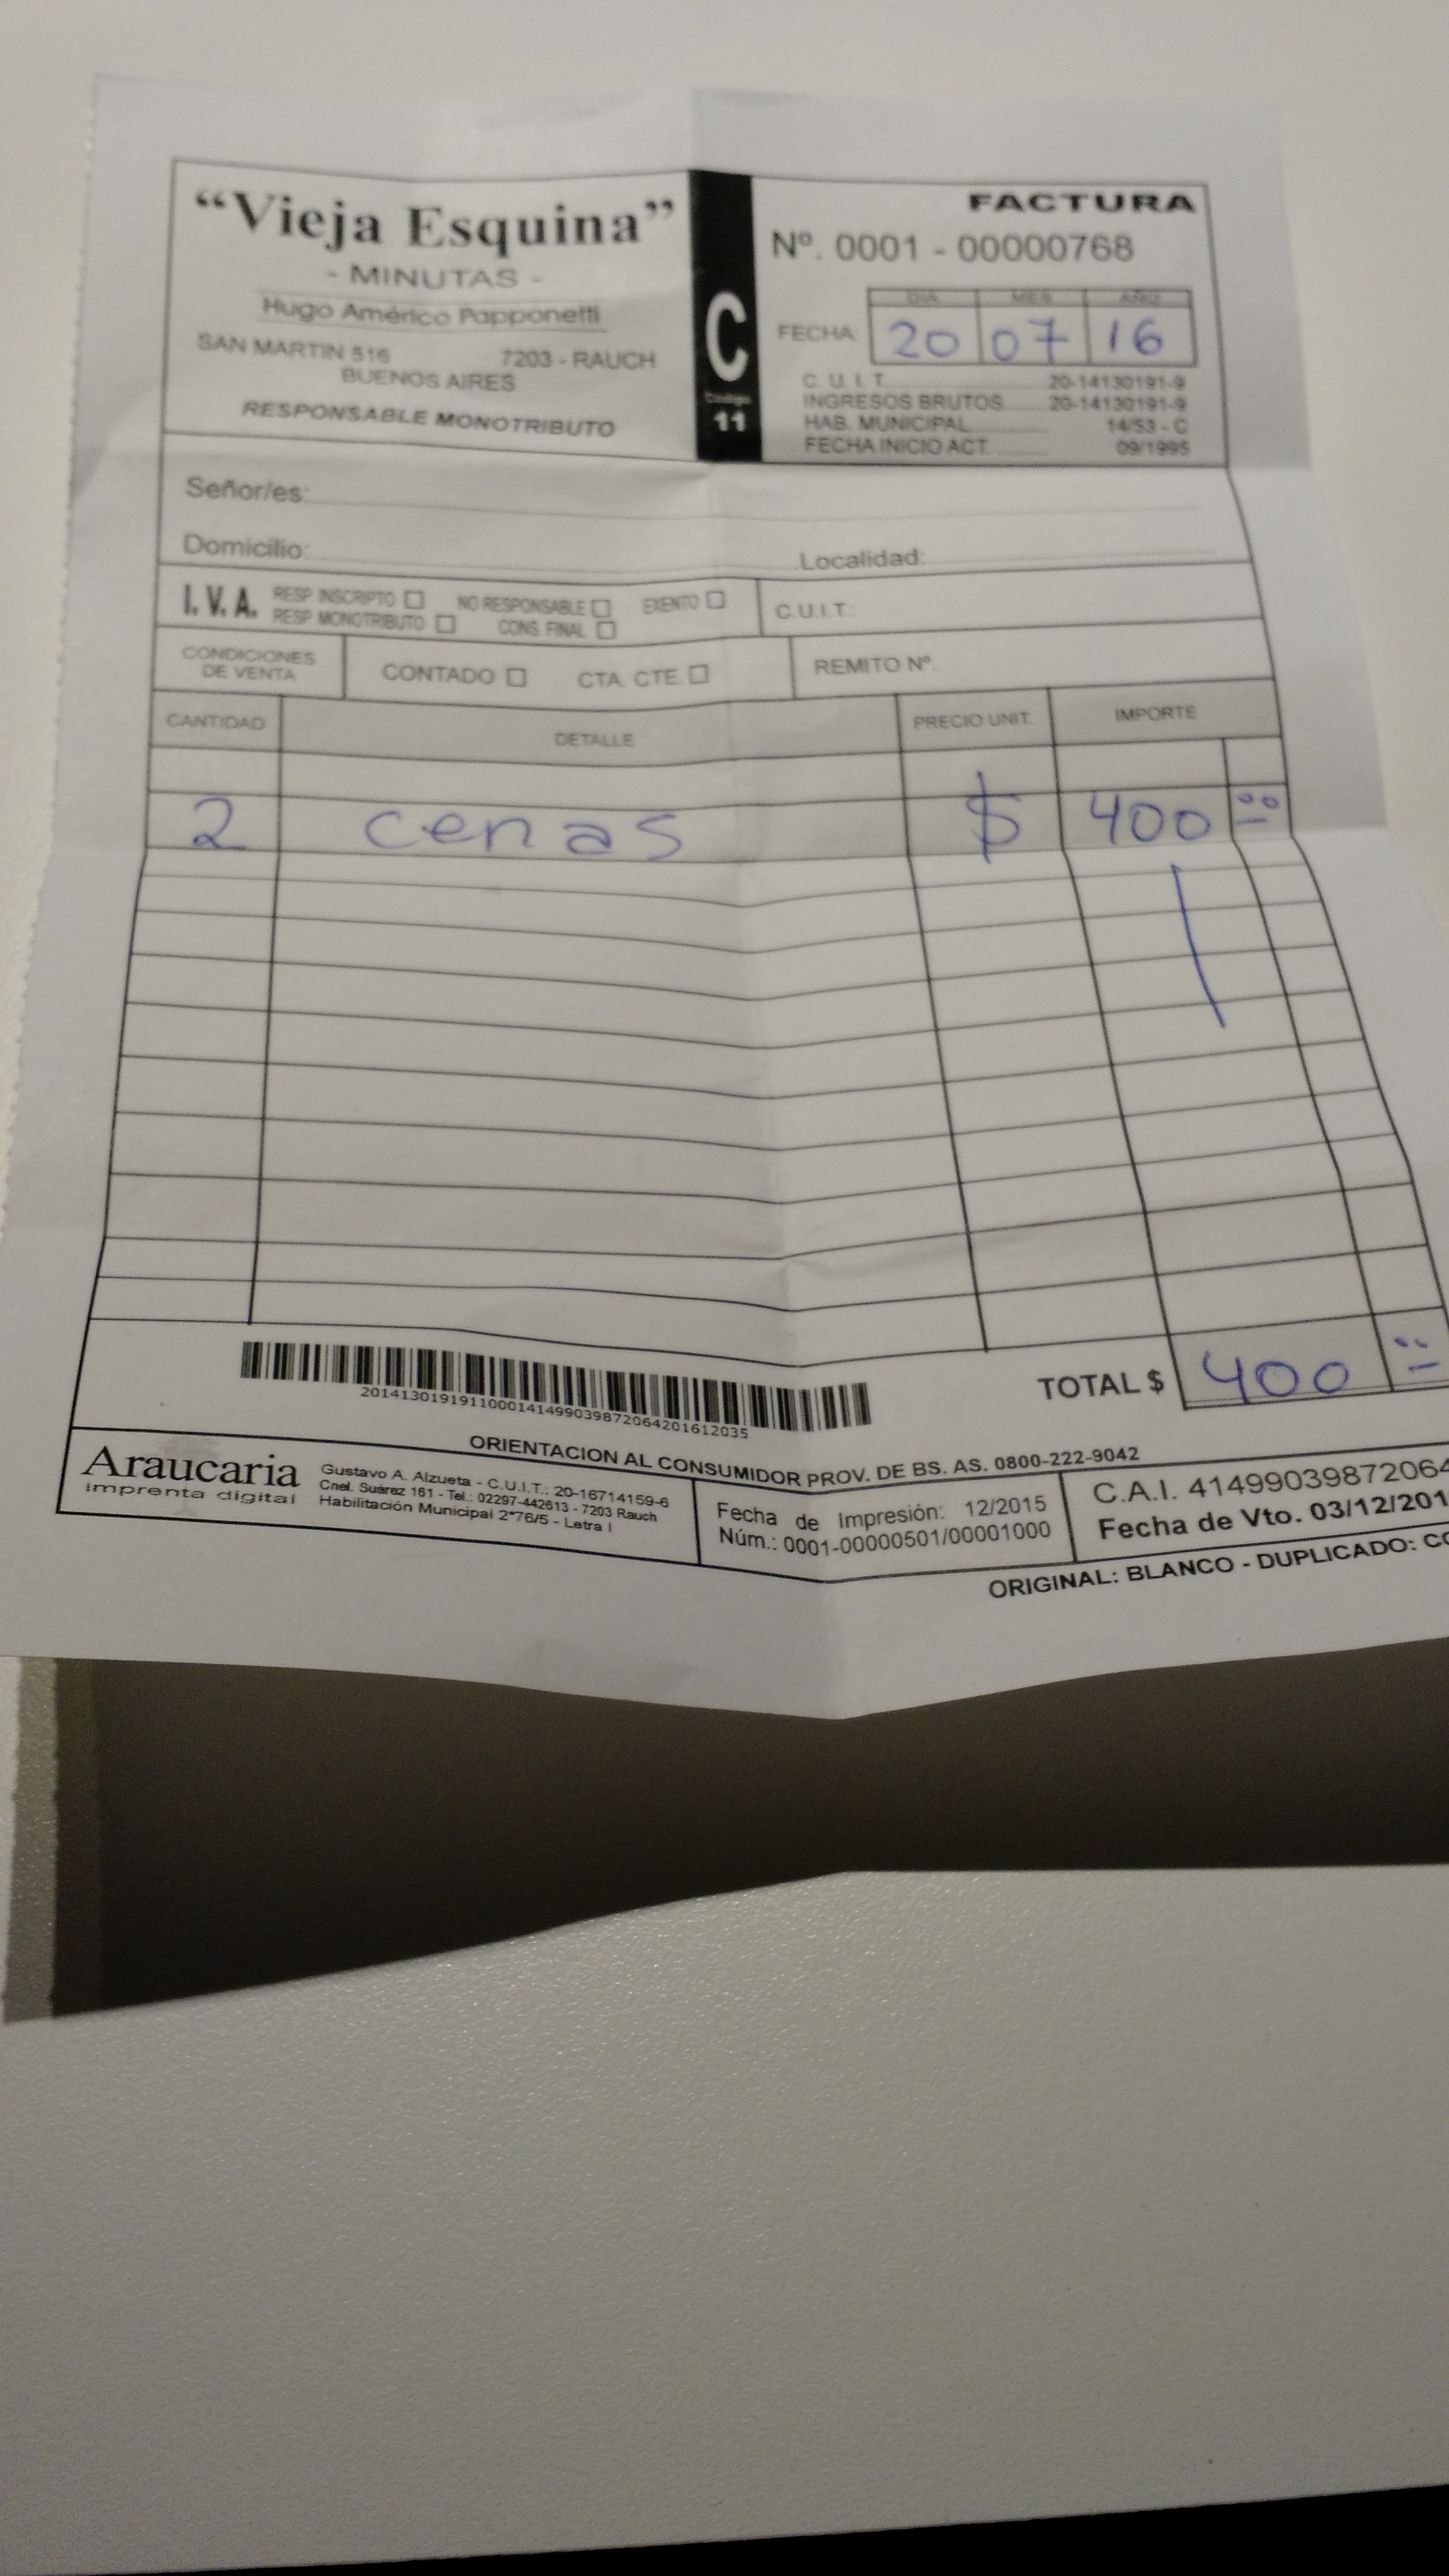 "Vieja Esquina"
- MINUTAS -
Hugo Américo Papponetti
SAN MARTIN 516 7203 - RAUCH
BUENOS AIRES
RESPONSABLE MONOTRIBUTO
C
Código
11
FACTURA
Nº. 0001 - 00000768
DIA MES AÑO
FECHA: 20 07 16
C. U. I. T. 20-14130191-9
INGRESOS BRUTOS 20-14130191-9
HAB. MUNICIPAL 14/53 - C
FECHA INICIO ACT. 09/1995
Señor/es:
Domicilio: Localidad:
I. V. A. RESP INSCRIPTO NO RESPONSABLE EXENTO
RESP MONOTRIBUTO CONS. FINAL
C.U.I.T.:
CONDICIONES
DE VENTA
CONTADO CTA. CTE. REMITO Nº.
CANTIDAD DETALLE PRECIO UNIT. IMPORTE
2 cenas $ 400 00
TOTAL $ 400 00
2014130191911000141499039872064201612035
ORIENTACION AL CONSUMIDOR PROV. DE BS. AS. 0800-222-9042
Araucaria
imprenta digital
Gustavo A. Alzueta - C.U.I.T.: 20-16714159-6
Cnel. Suárez 161 - Tel.: 02297-442613 - 7203 Rauch
Habilitación Municipal 2*76/5 - Letra I
Fecha de Impresión: 12/2015
Núm.: 0001-00000501/00001000
C.A.I. 41499039872064
Fecha de Vto. 03/12/201
ORIGINAL: BLANCO - DUPLICADO: CO